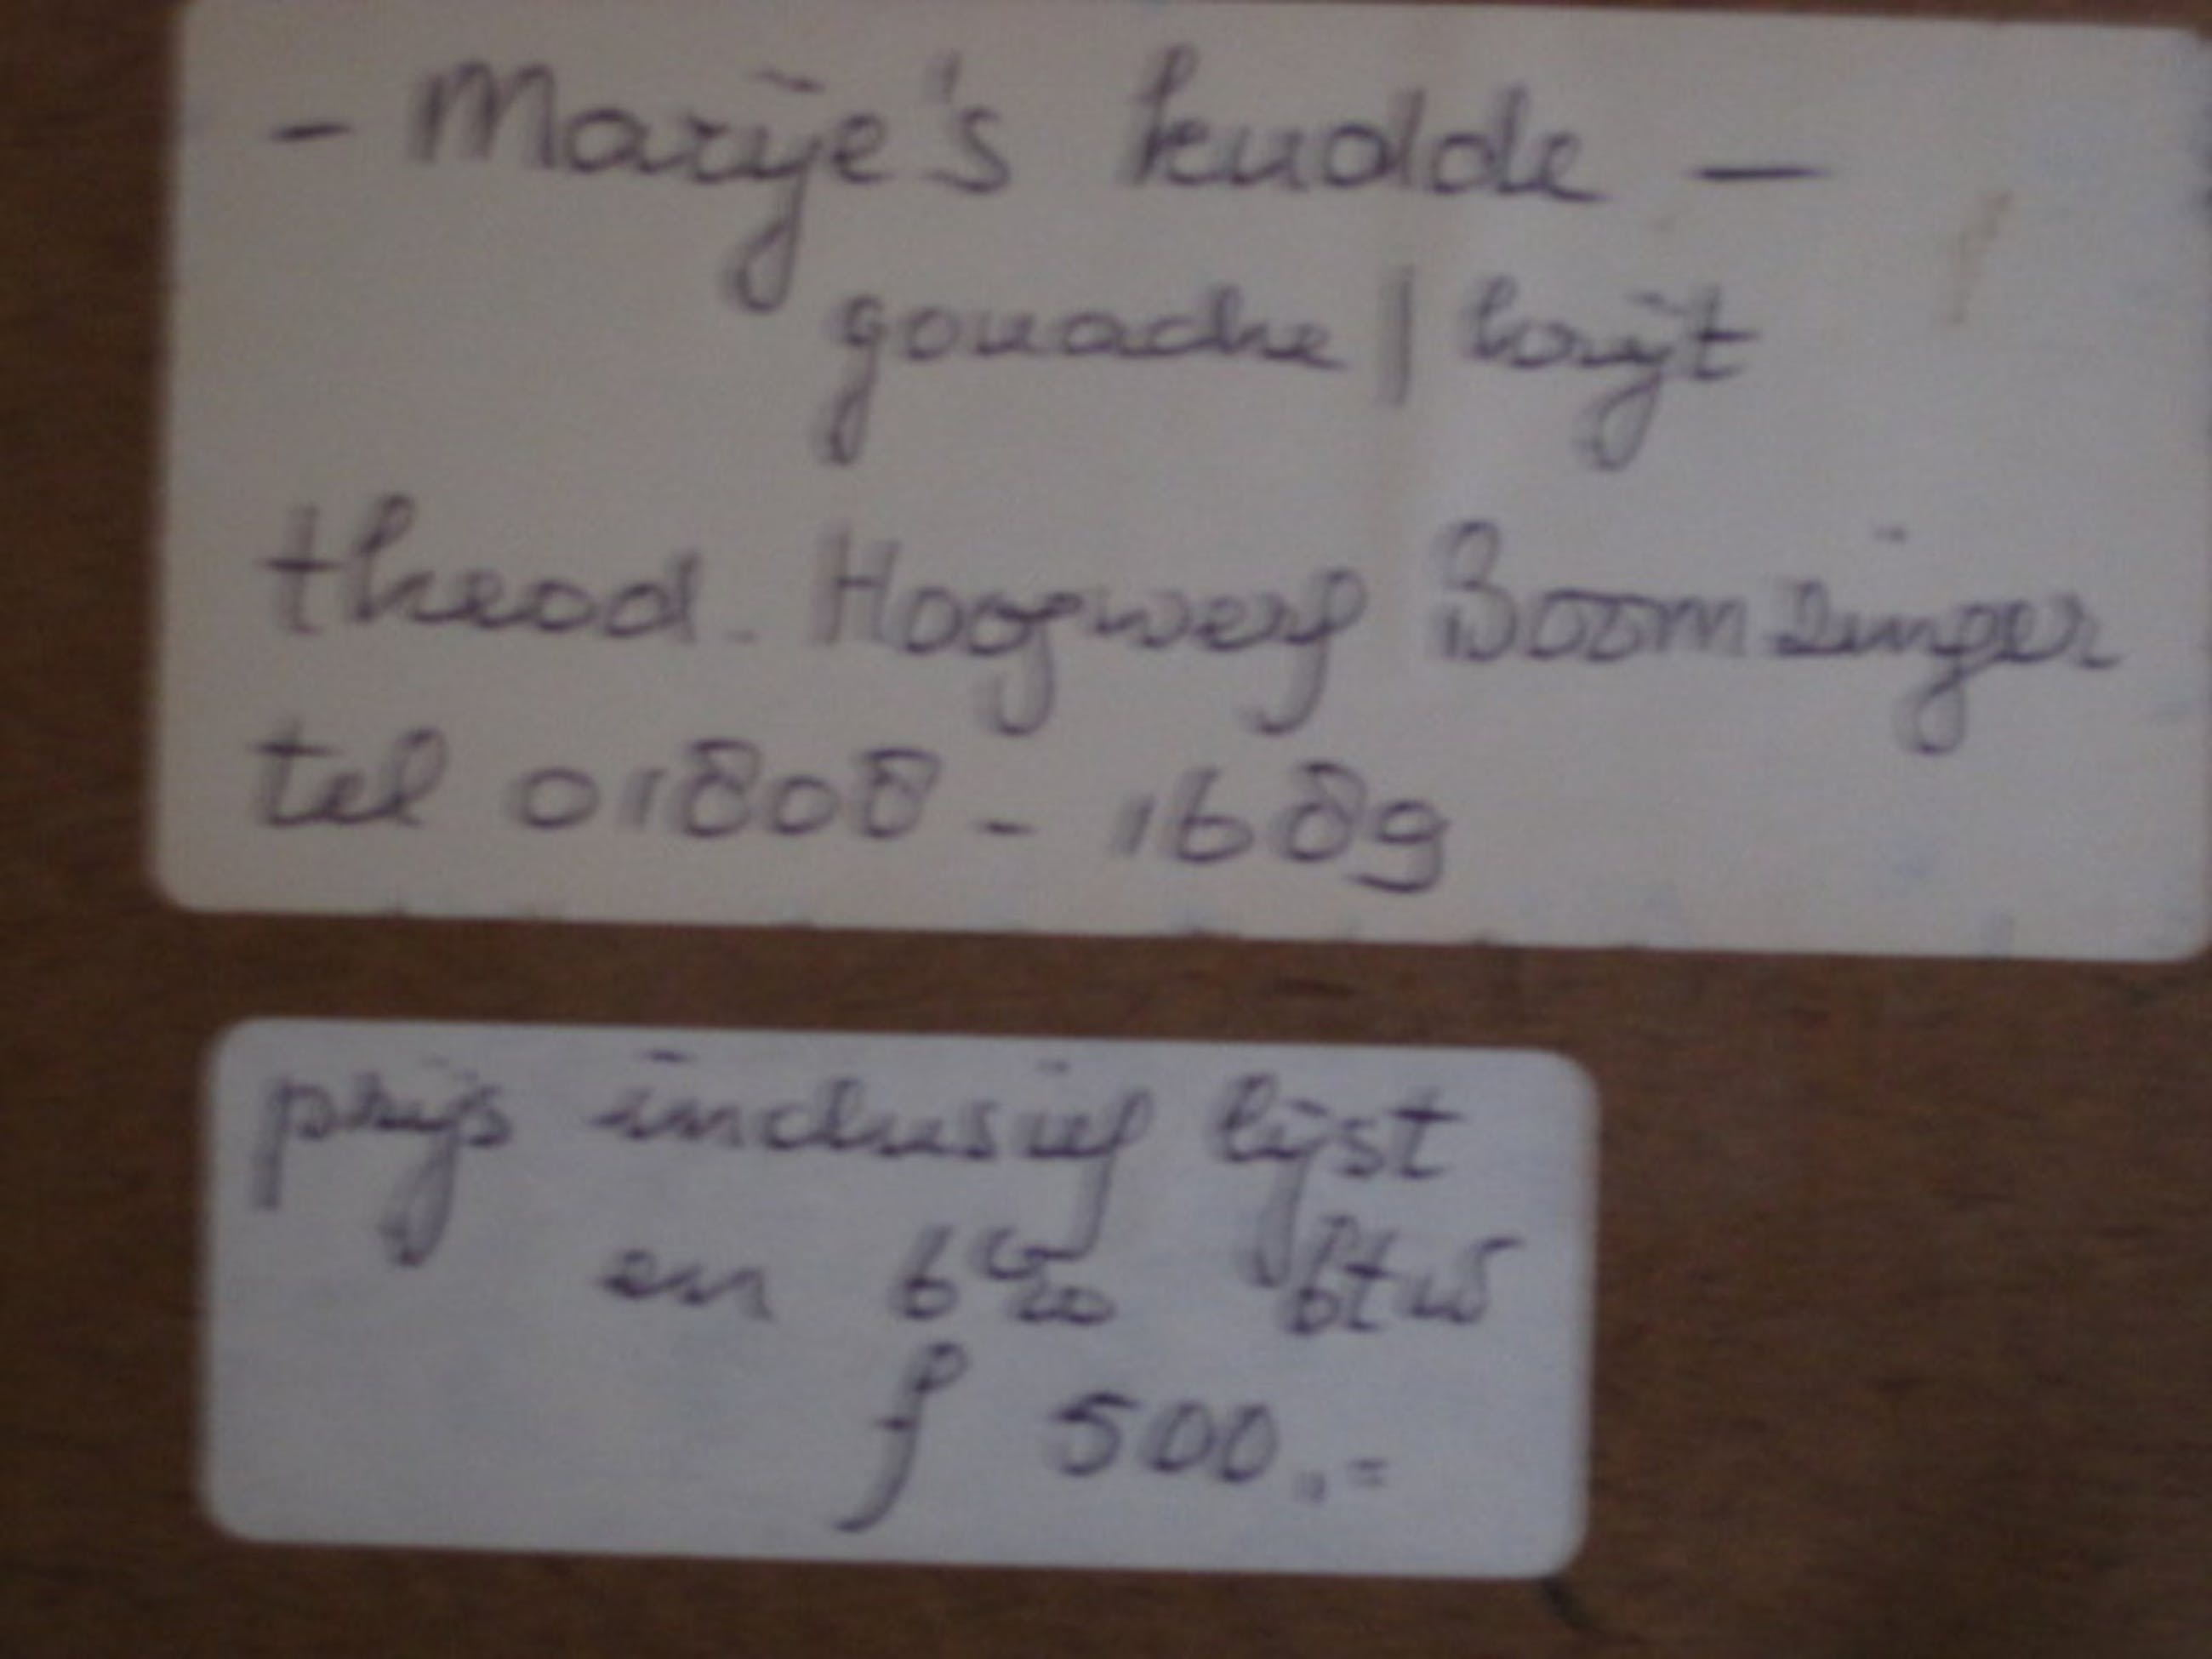 - Marije's kudde -
gouache | krijt
theod. Hoogwerf Boomzinger
tel 01808 - 1689
prijs inclusief lijst
en 6% btw
f 500,=